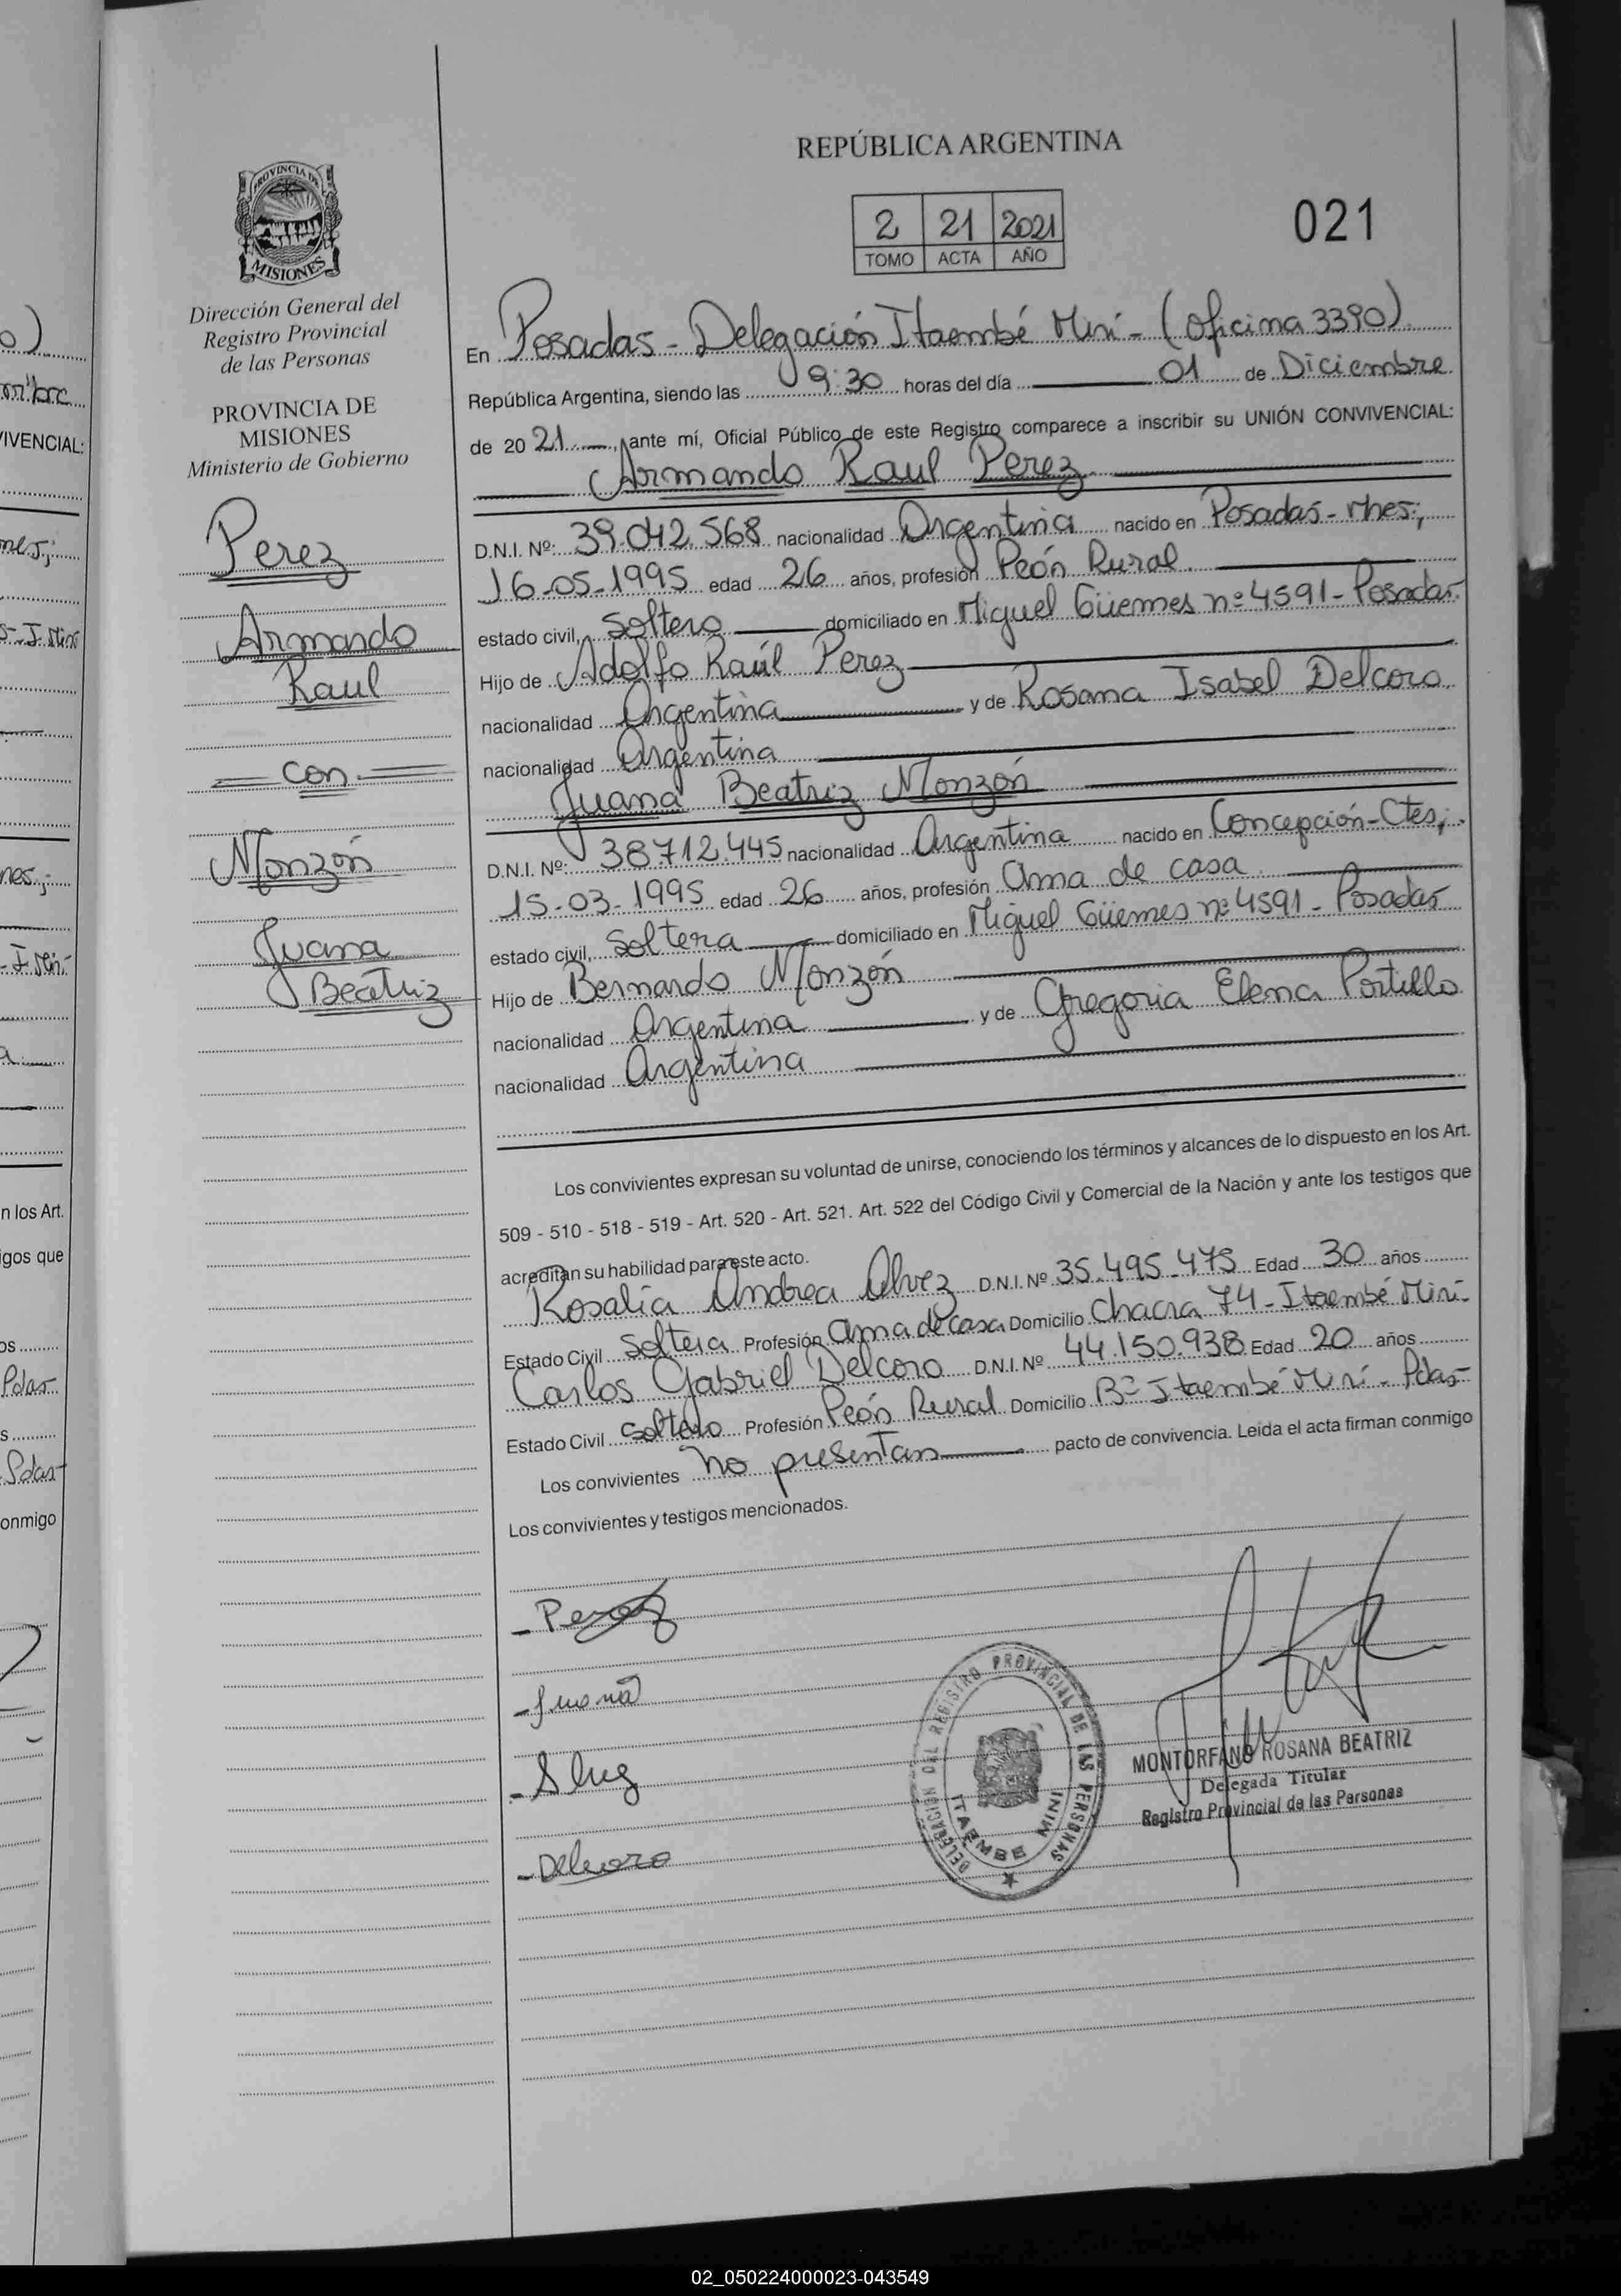 REPÚBLICA ARGENTINA
2 21 2021
TOMO ACTA AÑO
021
PROVINCIA DE
MISIONES
Dirección General del
Registro Provincial
de las Personas
PROVINCIA DE
MISIONES
Ministerio de Gobierno
Perez
Armando
Raul
con
Monzón
Juana
Beatriz
En Posadas - Delegación Itaembé Miní - (Oficina 3390)
República Argentina, siendo las 9:30 horas del día 01 de Diciembre
de 2021, ante mí, Oficial Público de este Registro comparece a inscribir su UNIÓN CONVIVENCIAL:
Armando Raul Perez
D.N.I. Nº: 39.042.568 nacionalidad Argentina nacido en Posadas - Mnes;
16-05-1995 edad 26 años, profesión Peón Rural.
estado civil, Soltero domiciliado en Miguel Güemes nº 4591 - Posadas
Hijo de Adolfo Raúl Perez
nacionalidad Argentina y de Rosana Isabel Delcoro
nacionalidad Argentina
Juana Beatriz Monzón
D.N.I. Nº: 38.712.445 nacionalidad Argentina nacido en Concepción - Ctes;
15-03-1995 edad 26 años, profesión Ama de casa.
estado civil, Soltera domiciliado en Miguel Güemes nº 4591 - Posadas
Hijo de Bernardo Monzón
nacionalidad Argentina y de Gregoria Elena Portillo
nacionalidad Argentina
Los convivientes expresan su voluntad de unirse, conociendo los términos y alcances de lo dispuesto en los Art.
509 - 510 - 518 - 519 - Art. 520 - Art. 521. Art. 522 del Código Civil y Comercial de la Nación y ante los testigos que
acreditan su habilidad para este acto.
Rosalía Andrea Alvez D.N.I. Nº 35.495.475 Edad 30 años
Estado Civil Soltera Profesión Ama de Casa Domicilio Chacra 74 - Itaembé Miní-
Carlos Gabriel Delcoro D.N.I. Nº 44.150.938 Edad 20 años
Estado Civil Soltero Profesión Peón Rural Domicilio Bº Itaembé Miní - Pdas-
Los convivientes no presentan pacto de convivencia. Leida el acta firman conmigo
Los convivientes y testigos mencionados.
- Perez
- Juana
- Delcoro
DELEGACION DEL REGISTRO PROVINCIAL DE LAS PERSONAS
ITAEMBE MINI
MONTORFANO ROSANA BEATRIZ
Delegada Titular
Registro Provincial de las Personas
02_050224000023-043549